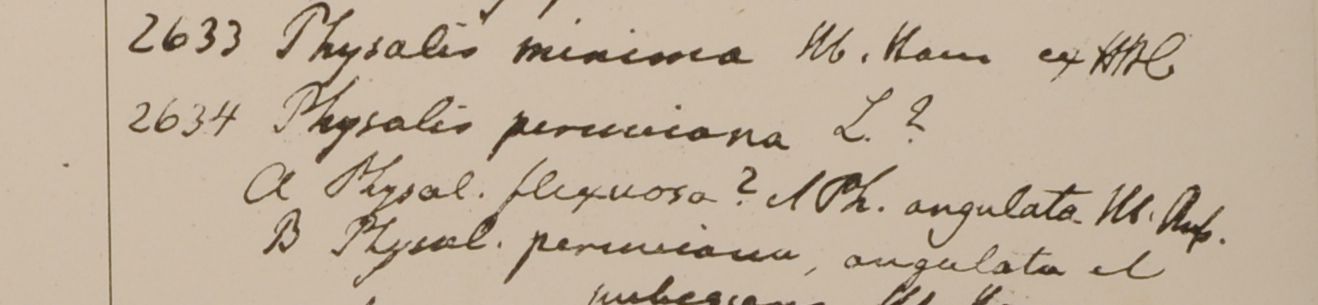 2633 Physalis minima Hb. Ham ex HBC
2634 Physalis peruviana L.?
A Physal. flexuosa? et Ph. angulata Hb. Russ.
B Physal. peruviana, angulata et
pubescens Hb.